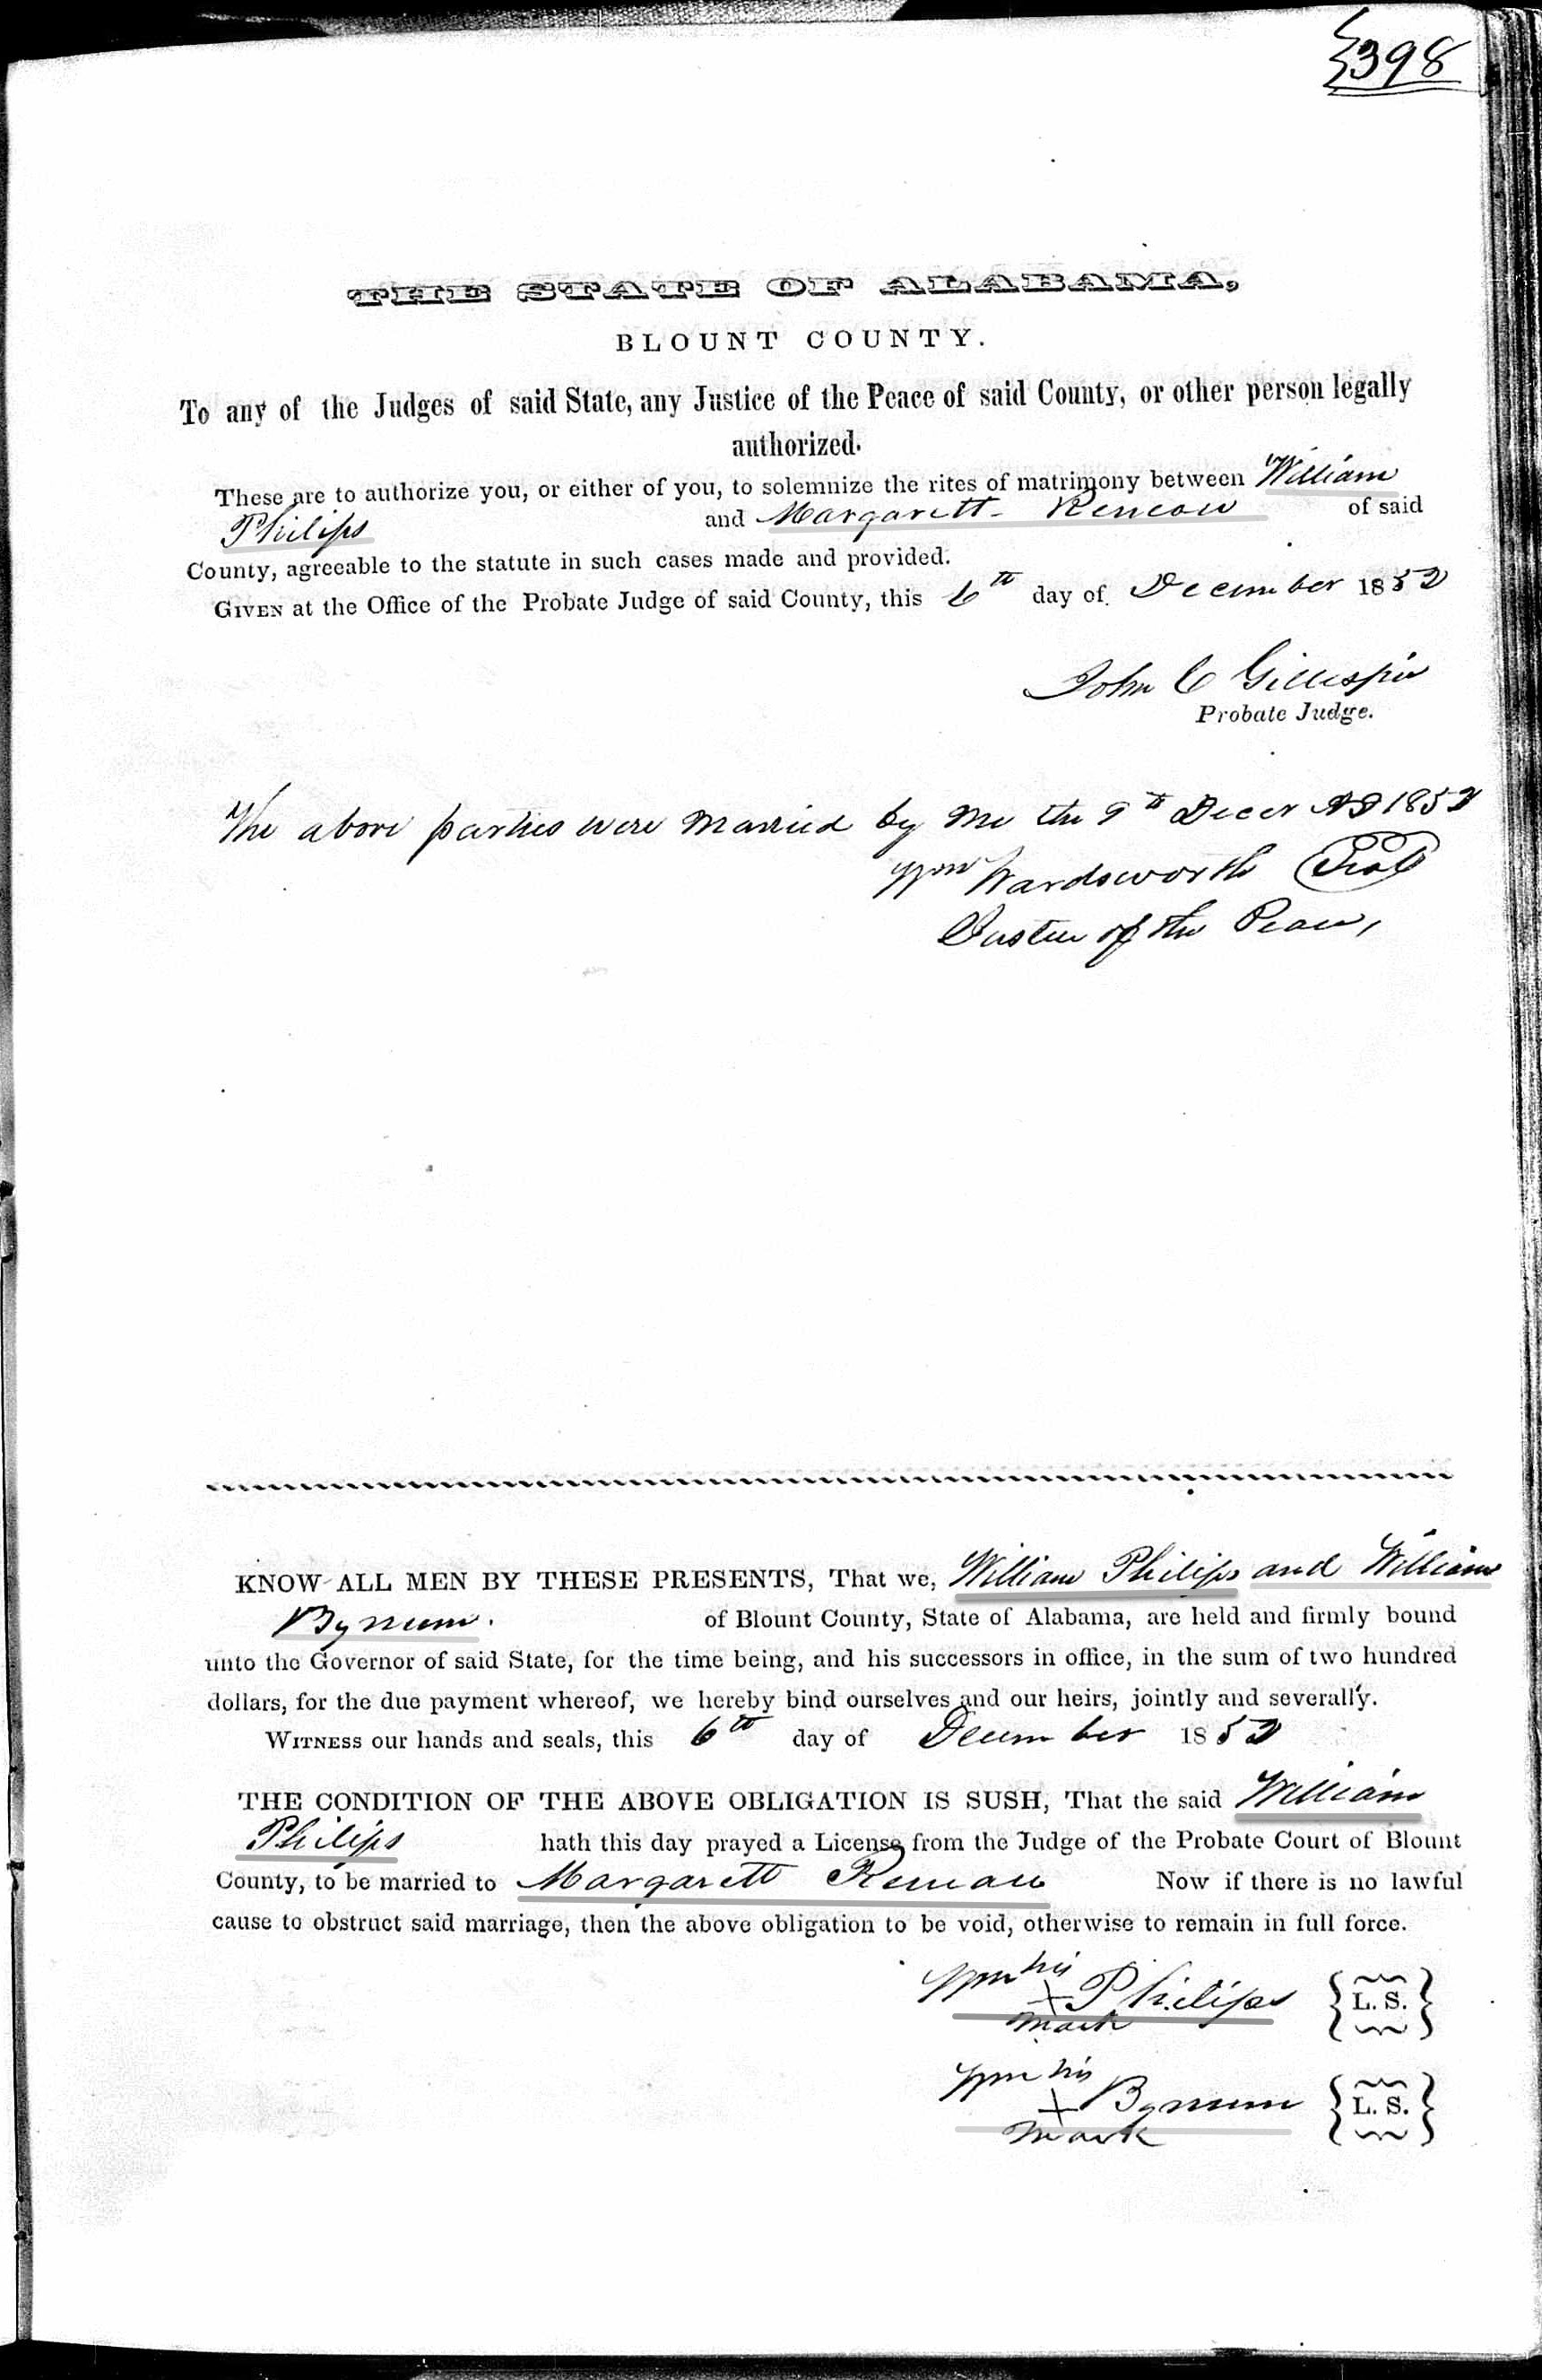 398
THE STATE OF ALABAMA,
BLOUNT COUNTY.
To any of the Judges of said State, any Justice of the Peace of said County, or other person legally
authorized.
These are to authorize you, or either of you, to solemnize the rites of matrimony between William
Philips and Margarett Rencow of said
County, agreeable to the statute in such cases made and provided.
GIVEN at the Office of the Probate Judge of said County, this 6th day of December 1852
John C Gillespie
Probate Judge.
The above parties were married by me the 9th Decer AD 1852
Wm Wardsworth Seal
Justice of the Peace,
KNOW ALL MEN BY THESE PRESENTS, That we, William Philips and William
Bynum. of Blount County, State of Alabama, are held and firmly bound
unto the Governor of said State, for the time being, and his successors in office, in the sum of two hundred
dollars, for the due payment whereof, we hereby bind ourselves and our heirs, jointly and severally.
WITNESS our hands and seals, this 6th day of December 1852
THE CONDITION OF THE ABOVE OBLIGATION IS SUSH, That the said William
Philips hath this day prayed a License from the Judge of the Probate Court of Blount
County, to be married to Margarett Rencaw Now if there is no lawful
cause to obstruct said marriage, then the above obligation to be void, otherwise to remain in full force.
Wm his
x Philips L. S.
mark
Wm his
x Bynum L. S.
mark